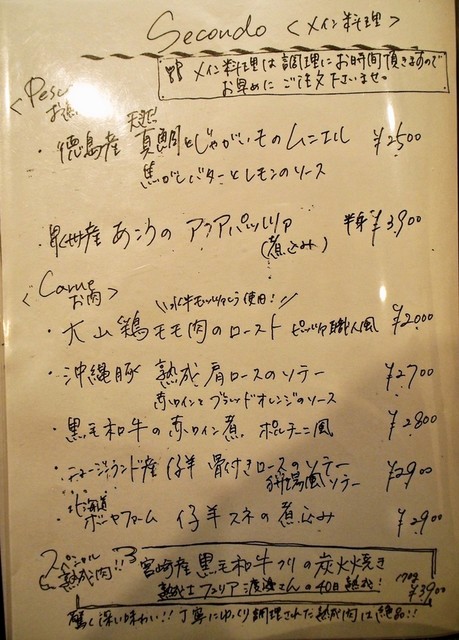 Secondo <メイン料理>
メイン料理は調理にお時間頂きますので
お早めにご注文下さいませ。
<Pesce
お魚
・徳島産 天然 真鯛とじゃがいものムニエル ¥2500
焦がしバターとレモンのソース
・泉州産 あこうの アクアパッツァ 半身 ¥3,900
(煮込み)
<Carne
お肉>
\水牛モッツァレラ使用!/
・大山鶏モモ肉のロースト ピッツァ職人風 ¥2000
・沖縄豚 熟成肩ロースのソテー ¥2700
赤ワインとブラッドオレンジのソース
・黒毛和牛の赤ワイン煮 ポルチーニ風 ¥2800
・ニュージーランド産 仔羊 骨付きロースのソテー ¥2900
風ソテー
・北海道
ボーヤファーム 仔羊スネの煮込み ¥2900
スペシャル
熟成肉!! 宮崎産黒毛和牛 の炭火焼き
熟成士 さんの40日熟成! 170g ¥3900
驚く深い味わい!! 丁寧にゆっくり調理された熟成肉は絶品!!